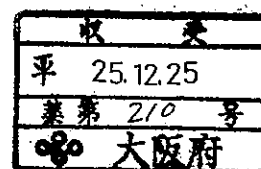 収受
平 25.12.25
薬第 210 号
大阪府